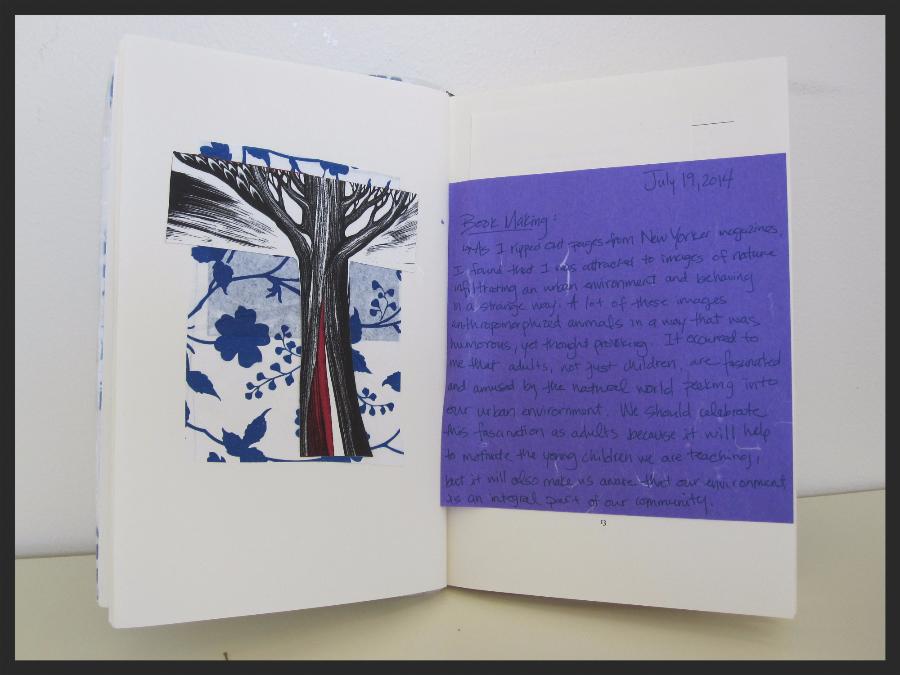 July 19, 2014
Book Making:
As I ripped out pages from New Yorker magazines,
I found that I was attracted to images of nature
infiltrating an urban environment and behaving
in a strange way. A lot of these images
anthropomorphized animals in a way that was
humorous, yet thought provoking. It occurred to
me that adults, not just children, are fascinated
and amused by the natural world peaking into
our urban environment. We should celebrate
this fascination as adults because it will help
to motivate the young children we are teaching,
but it will also make us aware that our environment
is an integral part of our community.
13